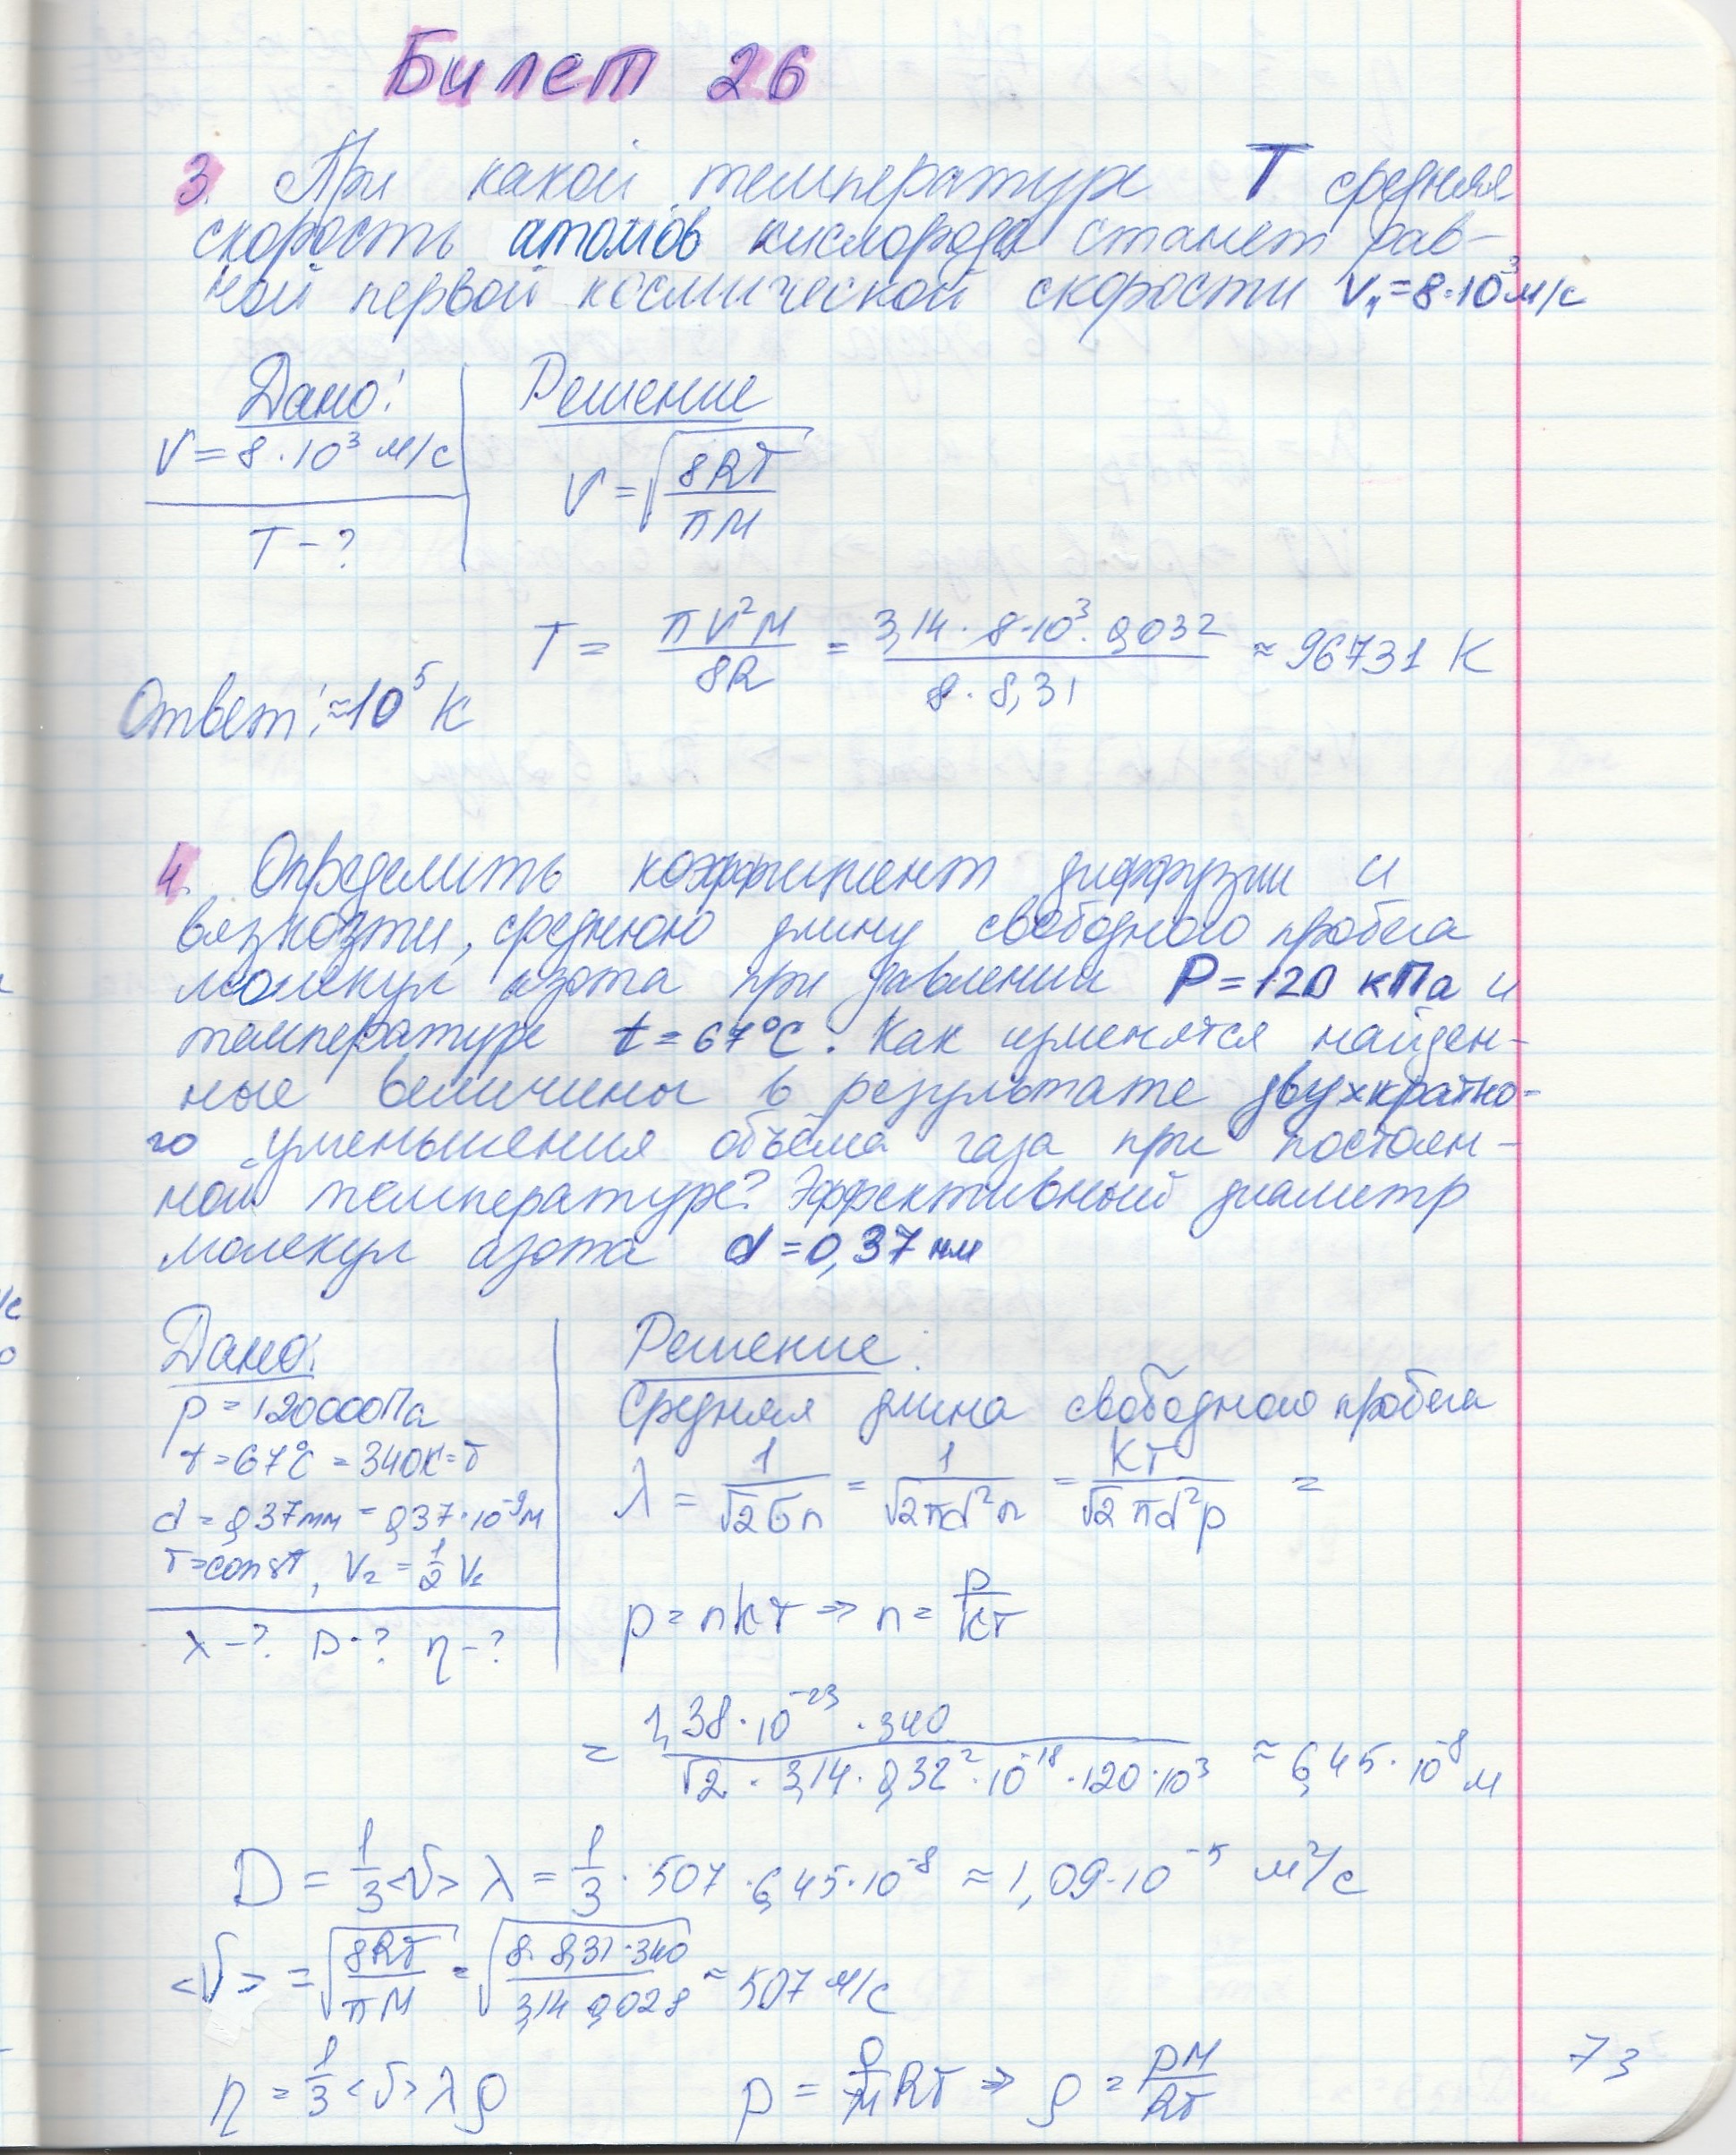 Билет 26
3. При какой температуре T средняя
скорость атомов кислорода станет рав-
ной первой космической скорости V₁=8·10³м/с
Дано:
V=8·10³ м/с
T-?
Решение
V=√(8RT/πM)
T = πV²M/8R = 3,14·8·10³·0,032/8·8,31 ≈ 96731 K
Ответ: ≈10⁵ K
4. Определить коэффициент диффузии и
вязкозти, среднюю длину свободного пробега
молекул азота при давлении P=120 кПа и
температуре t=67°C. Как изменятся найден-
ные величины в результате двухкратно-
го уменьшения объёма газа при постоян-
ной температуре? Эффективный диаметр
молекул азота d=0,37 нм
Дано:
p=120000Па
t=67°C=340K=T
d=0,37мм=0,37·10⁻⁹м
T=const, V₂=½V₁
λ-? D-? η-?
Решение.
Средняя длина свободного пробега
λ = 1/√2σn = 1/√2πd²n = kT/√2πd²p =
p=nkT ⇒ n=p/kT
= 1,38·10⁻²³·340/√2·3,14·0,32²·10⁻¹⁸·120·10³ ≈ 6,45·10⁻⁸ м
D = 1/3<V>λ = 1/3·507·6,45·10⁻⁸ ≈ 1,09·10⁻⁵ м²/с
<V> = √(8RT/πM) = √(8·8,31·340/3,14 0,028) ≈ 507 м/с
η = 1/3<V>λρ p = ρ/M RT ⇒ ρ = pM/RT
73